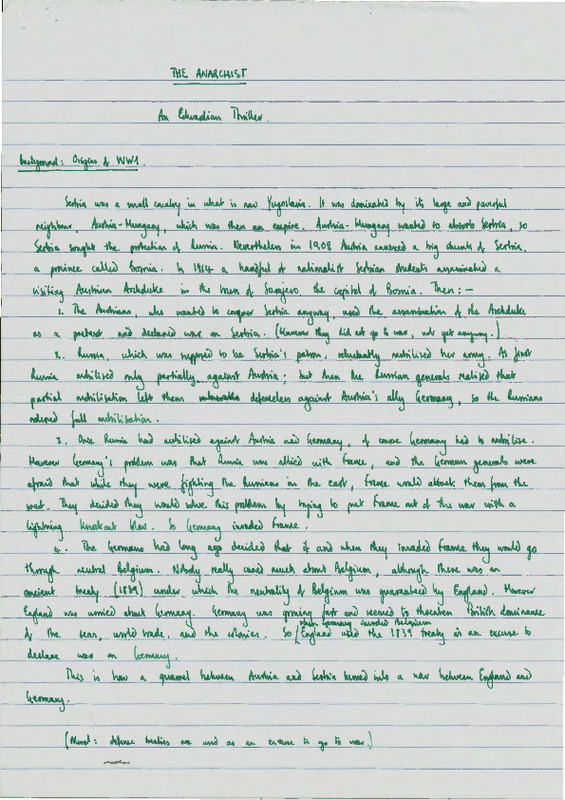 THE ANARCHIST
An Edwardian Thriller.
Background: Origins of WW1.
Serbia was a small country in what is now Yugoslavia. It was dominated by its large and powerful
neighbour, Austria-Hungary, which was then an empire. Austria-Hungary wanted to absorb Serbia, so
Serbia sought the protection of Russia. Nevertheless in 1908 Austria annexed a big chunk of Serbia,
a province called Bosnia. In 1914 a handful of nationalist Serbian students assassinated a
visiting Austrian Archduke in the town of Sarajevo, the capital of Bosnia. Then:—
1. The Austrians, who wanted to conquer Serbia anyway, used the assassination of the Archduke
as a pretext and declared war on Serbia. (However they did not go to war, not yet anyway.)
2. Russia, which was supposed to be Serbia's patron, reluctantly mobilised her army. At first
Russia mobilised only partially, against Austria; but then the Russian generals realised that
partial mobilisation left them vulnerable defenceless against Austria's ally Germany, so the Russians
ordered full mobilisation.
3. Once Russia had mobilised against Austria and Germany, of course Germany had to mobilise.
However Germany's problem was that Russia was allied with France, and the German generals were
afraid that while they were fighting the Russians in the east, France would attack them from the
west. They decided they would solve this problem by trying to put France out of the war with a
lightning knockout blow. So Germany invaded France.
4. The Germans had long ago decided that if and when they invaded France they would go
through neutral Belgium. Nobody really cared much about Belgium, although there was an
ancient treaty (1839) under which the neutrality of Belgium was guaranteed by England. However
England was worried about Germany. Germany was growing fast and seemed to threaten British dominance
of the seas, world trade, and the colonies. So when Germany invaded Belgium England used the 1839 treaty as an excuse to
declare war on Germany.
This is how a quarrel between Austria and Serbia turned into a war between England and
Germany.
(Moral: defence treaties are used as an excuse to go to war.)